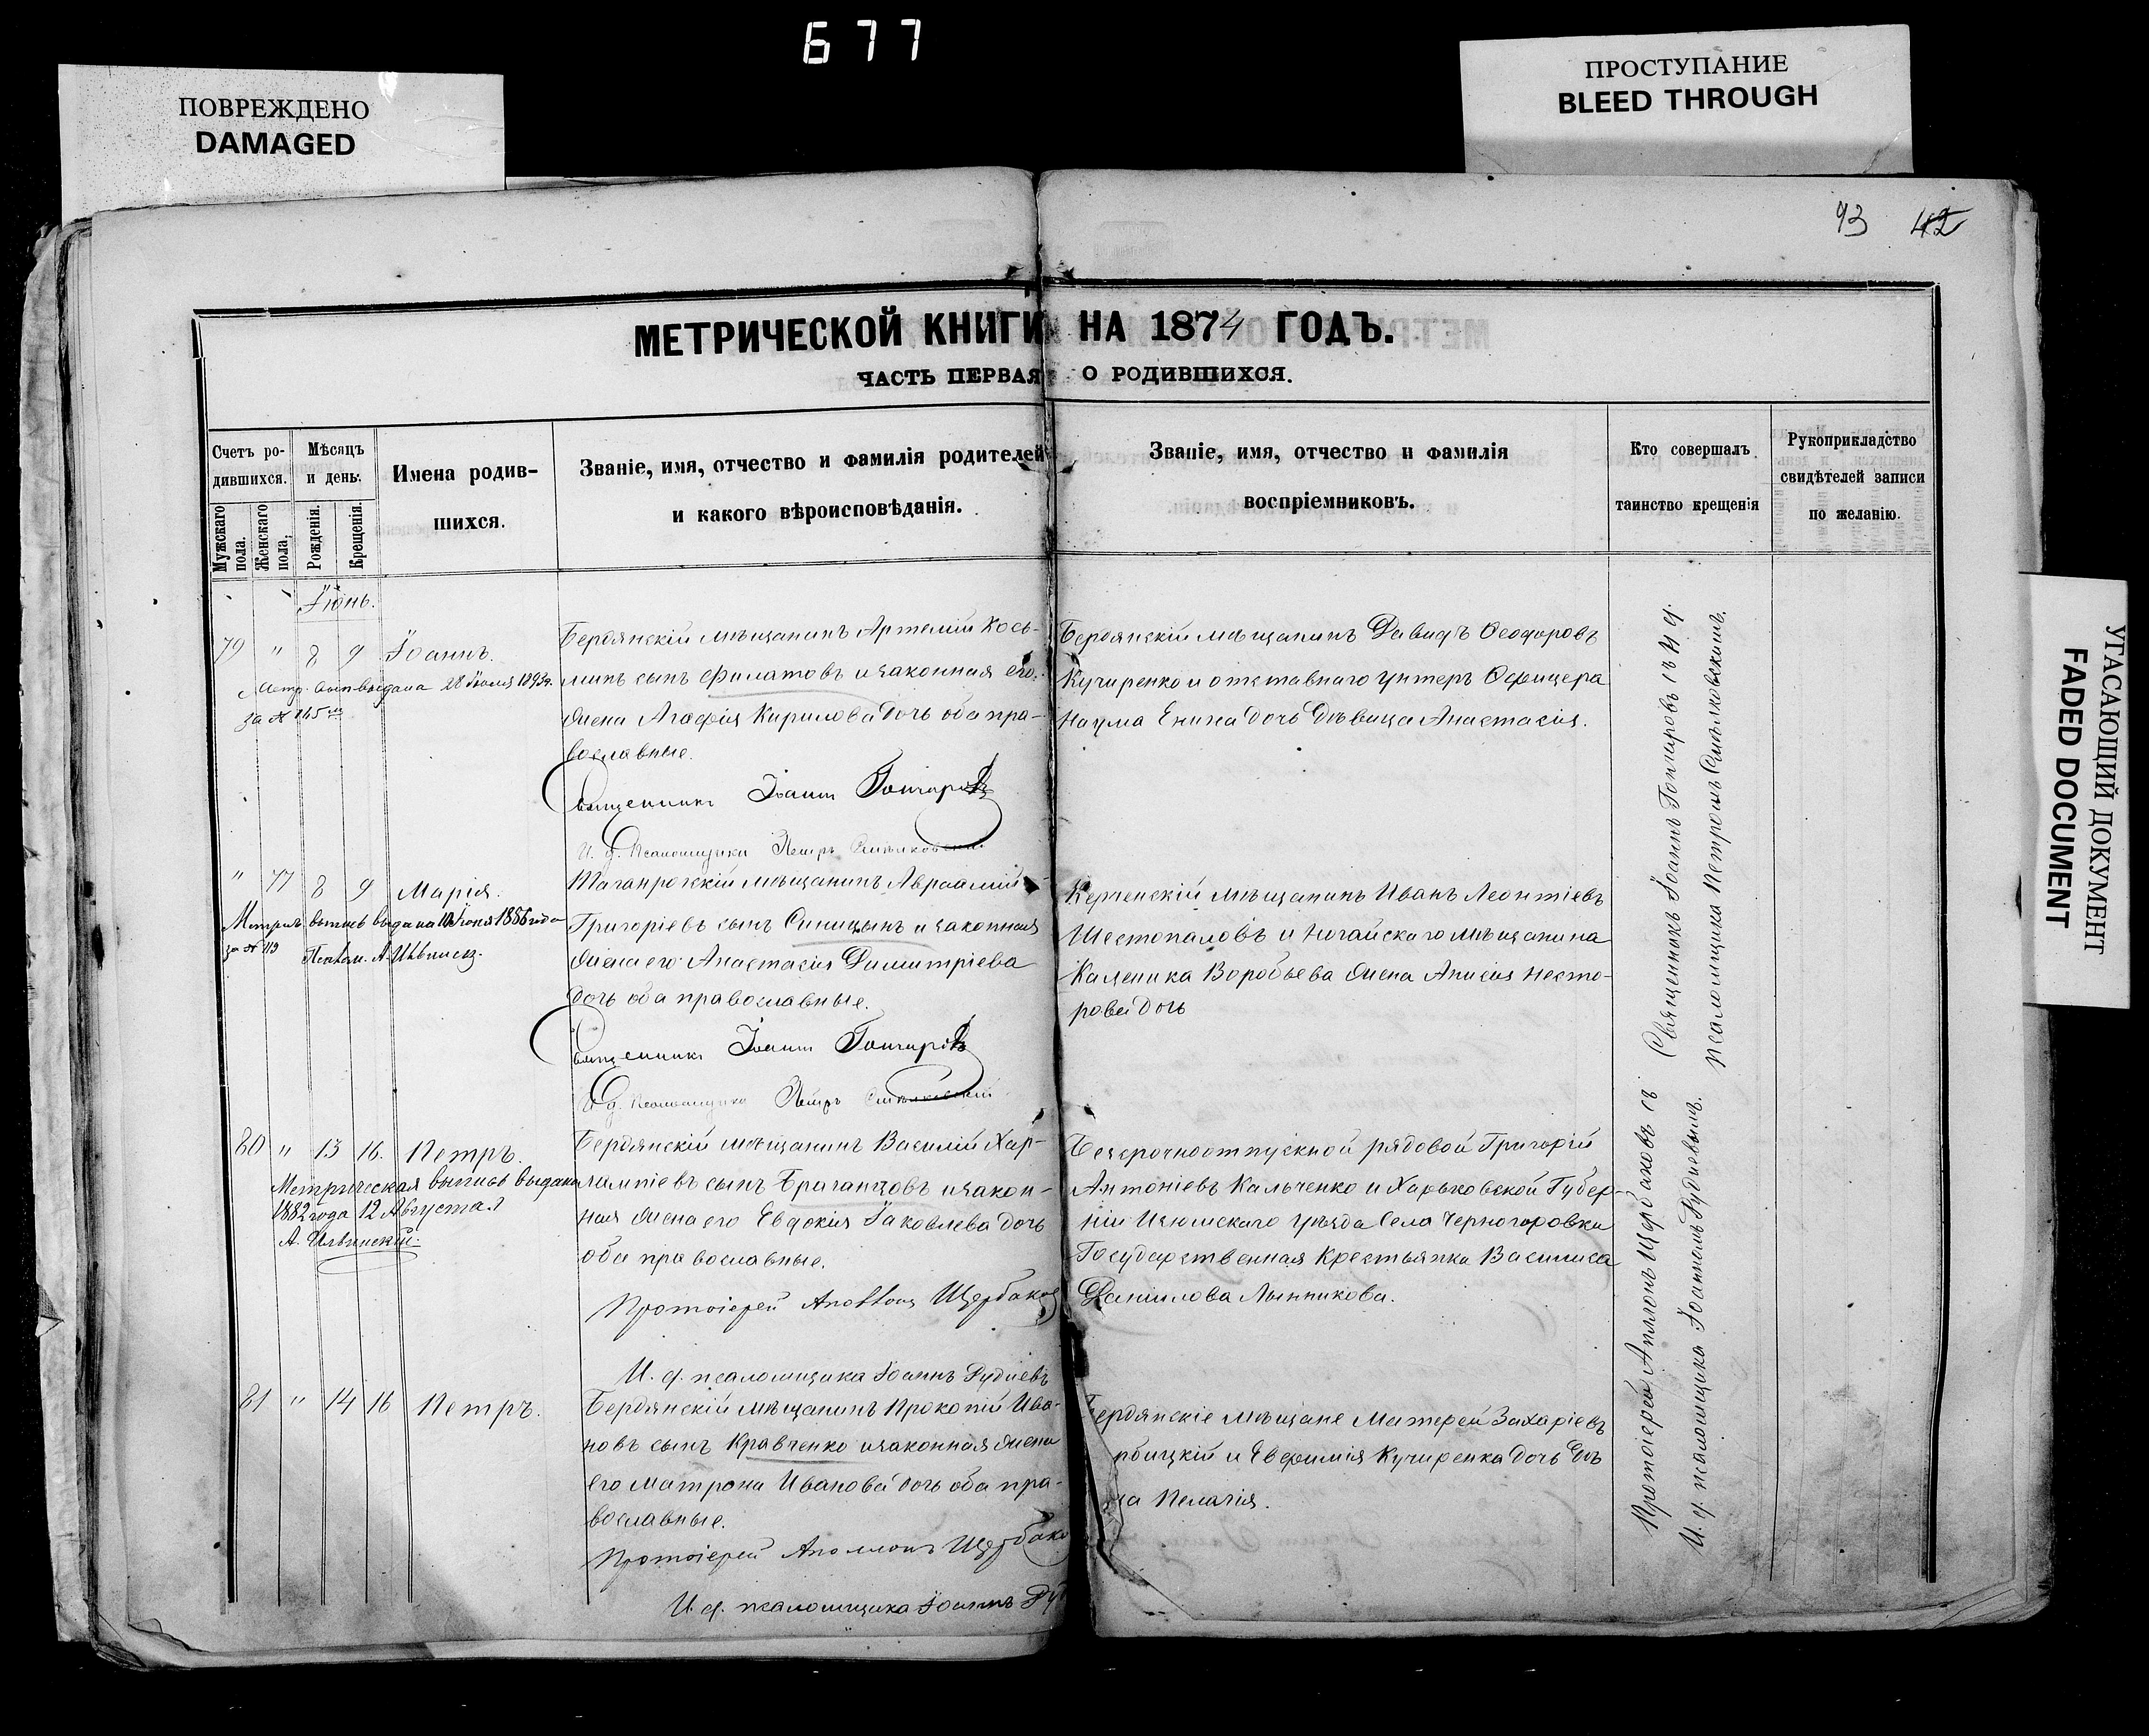 677
ПОВРЕЖДЕНО
DAMAGED
ПРОСТУПАНИЕ
BLEED THROUGH
93 42
МЕТРИЧЕСКОЙ КНИГИ НА 1874 ГОДЪ.
ЧАСТЬ ПЕРВАЯ О РОДИВШИХСЯ.
Счетъ ро-
дившихся.
Мужскаго пола.
Женскаго пола.
Мѣсяцъ
и день.
Рожденія.
Крещенія.
Имена родив-
шихся.
Званіе, имя, отчество и фамилія родителей
и какого вѣроисповѣданія.
Званіе, имя, отчество и фамилія
воспріемниковъ.
Кто совершалъ
таинство крещенія
Рукоприкладство
свидѣтелей записи
по желанію.
Іюнь.
79 " 8 9 Іоаннъ.
Метр. вып. выдана 28 Іюля 1895г.
за № 165
Бердянскій мѣщанинъ Артемій Кось-
минъ сынъ Филатовъ и законная его
жена Агафія Кирилова дочь оба пра-
вославные.
Священникъ Іоаннъ Гончаровъ
И. д. Псаломщика Петръ Смѣлковскій
Бердянскій мѣщанинъ Давидъ Ѳеодоровъ
Кучиренко и отставнаго унтеръ Офицера
Наума Енина дочь дѣвица Анастасія.
" 77 8 9 Марія.
Метрич. выпись выдана 10 Іюня 1886 года
за № 119 Псалом. А. Ильинскій.
Таганрогскій мѣщанинъ Авраамій
Григоріевъ сынъ Синицынъ и законная
жена его Анастасія Димитріева
дочь оба православные.
Священникъ Іоаннъ Гончаровъ
И. д. Псаломщика Петръ Смѣлковскій
Керченскій мѣщанинъ Иванъ Леонтіевъ
Шестопаловъ и Ногайскаго мѣщанина
Каленика Воробьева жена Анисія Несто-
рова дочь
80 " 13 16. Петръ.
Метрическая выпись выдана
1882 года 12 Августа.
А. Ильинскій.
Бердянскій мѣщанинъ Василій Хар-
лампіевъ сынъ Браганцовъ и закон-
ная жена его Евдокія Іаковлева дочь
оба православные.
Протоіерей Аполлонъ Щербаковъ
И. д. псаломщика Іоаннъ Рудневъ
Безсрочноотпускной рядовой Григорій
Антоніевъ Кальченко и Харьковской Губер-
ніи Изюмскаго уѣзда Села Черногоровки
Государственная Крестьянка Василиса
Даніилова Лынникова.
81 " 14 16 Петръ.
Бердянскій мѣщанинъ Прокопій Ива-
новъ сынъ Кравченко и законная жена
его Матрона Иванова дочь оба пра-
вославные.
Протоіерей Аполлонъ Щербако
И. д. псаломщика Іоаннъ Ру
Бердянскіе мѣщане Матфей Захаріевъ
рбицкій и Евфимія Кучиренка дочь дѣ
ца Пелагія.
Священникъ Іоаннъ Гончаровъ съ и. д.
псаломщика Петромъ Смѣлковскимъ.
Протоіерей Аполлонъ Щербаковъ съ
И. д. псаломщика Іоанномъ Рудневымъ.
УГАСАЮЩИЙ ДОКУМЕНТ
FADED DOCUMENT